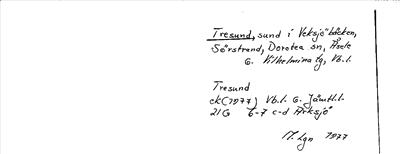 Tresund, sund i Veksjöbäcken,
Sörstrand, Dorotea sn, Åsele
o. Vilhelmina tg, Vb.l.
Tresund
ek(1977) Vb.l. o. Jämtl.l.
21G 6-7 c-d Arksjö
M. Lgn 1977